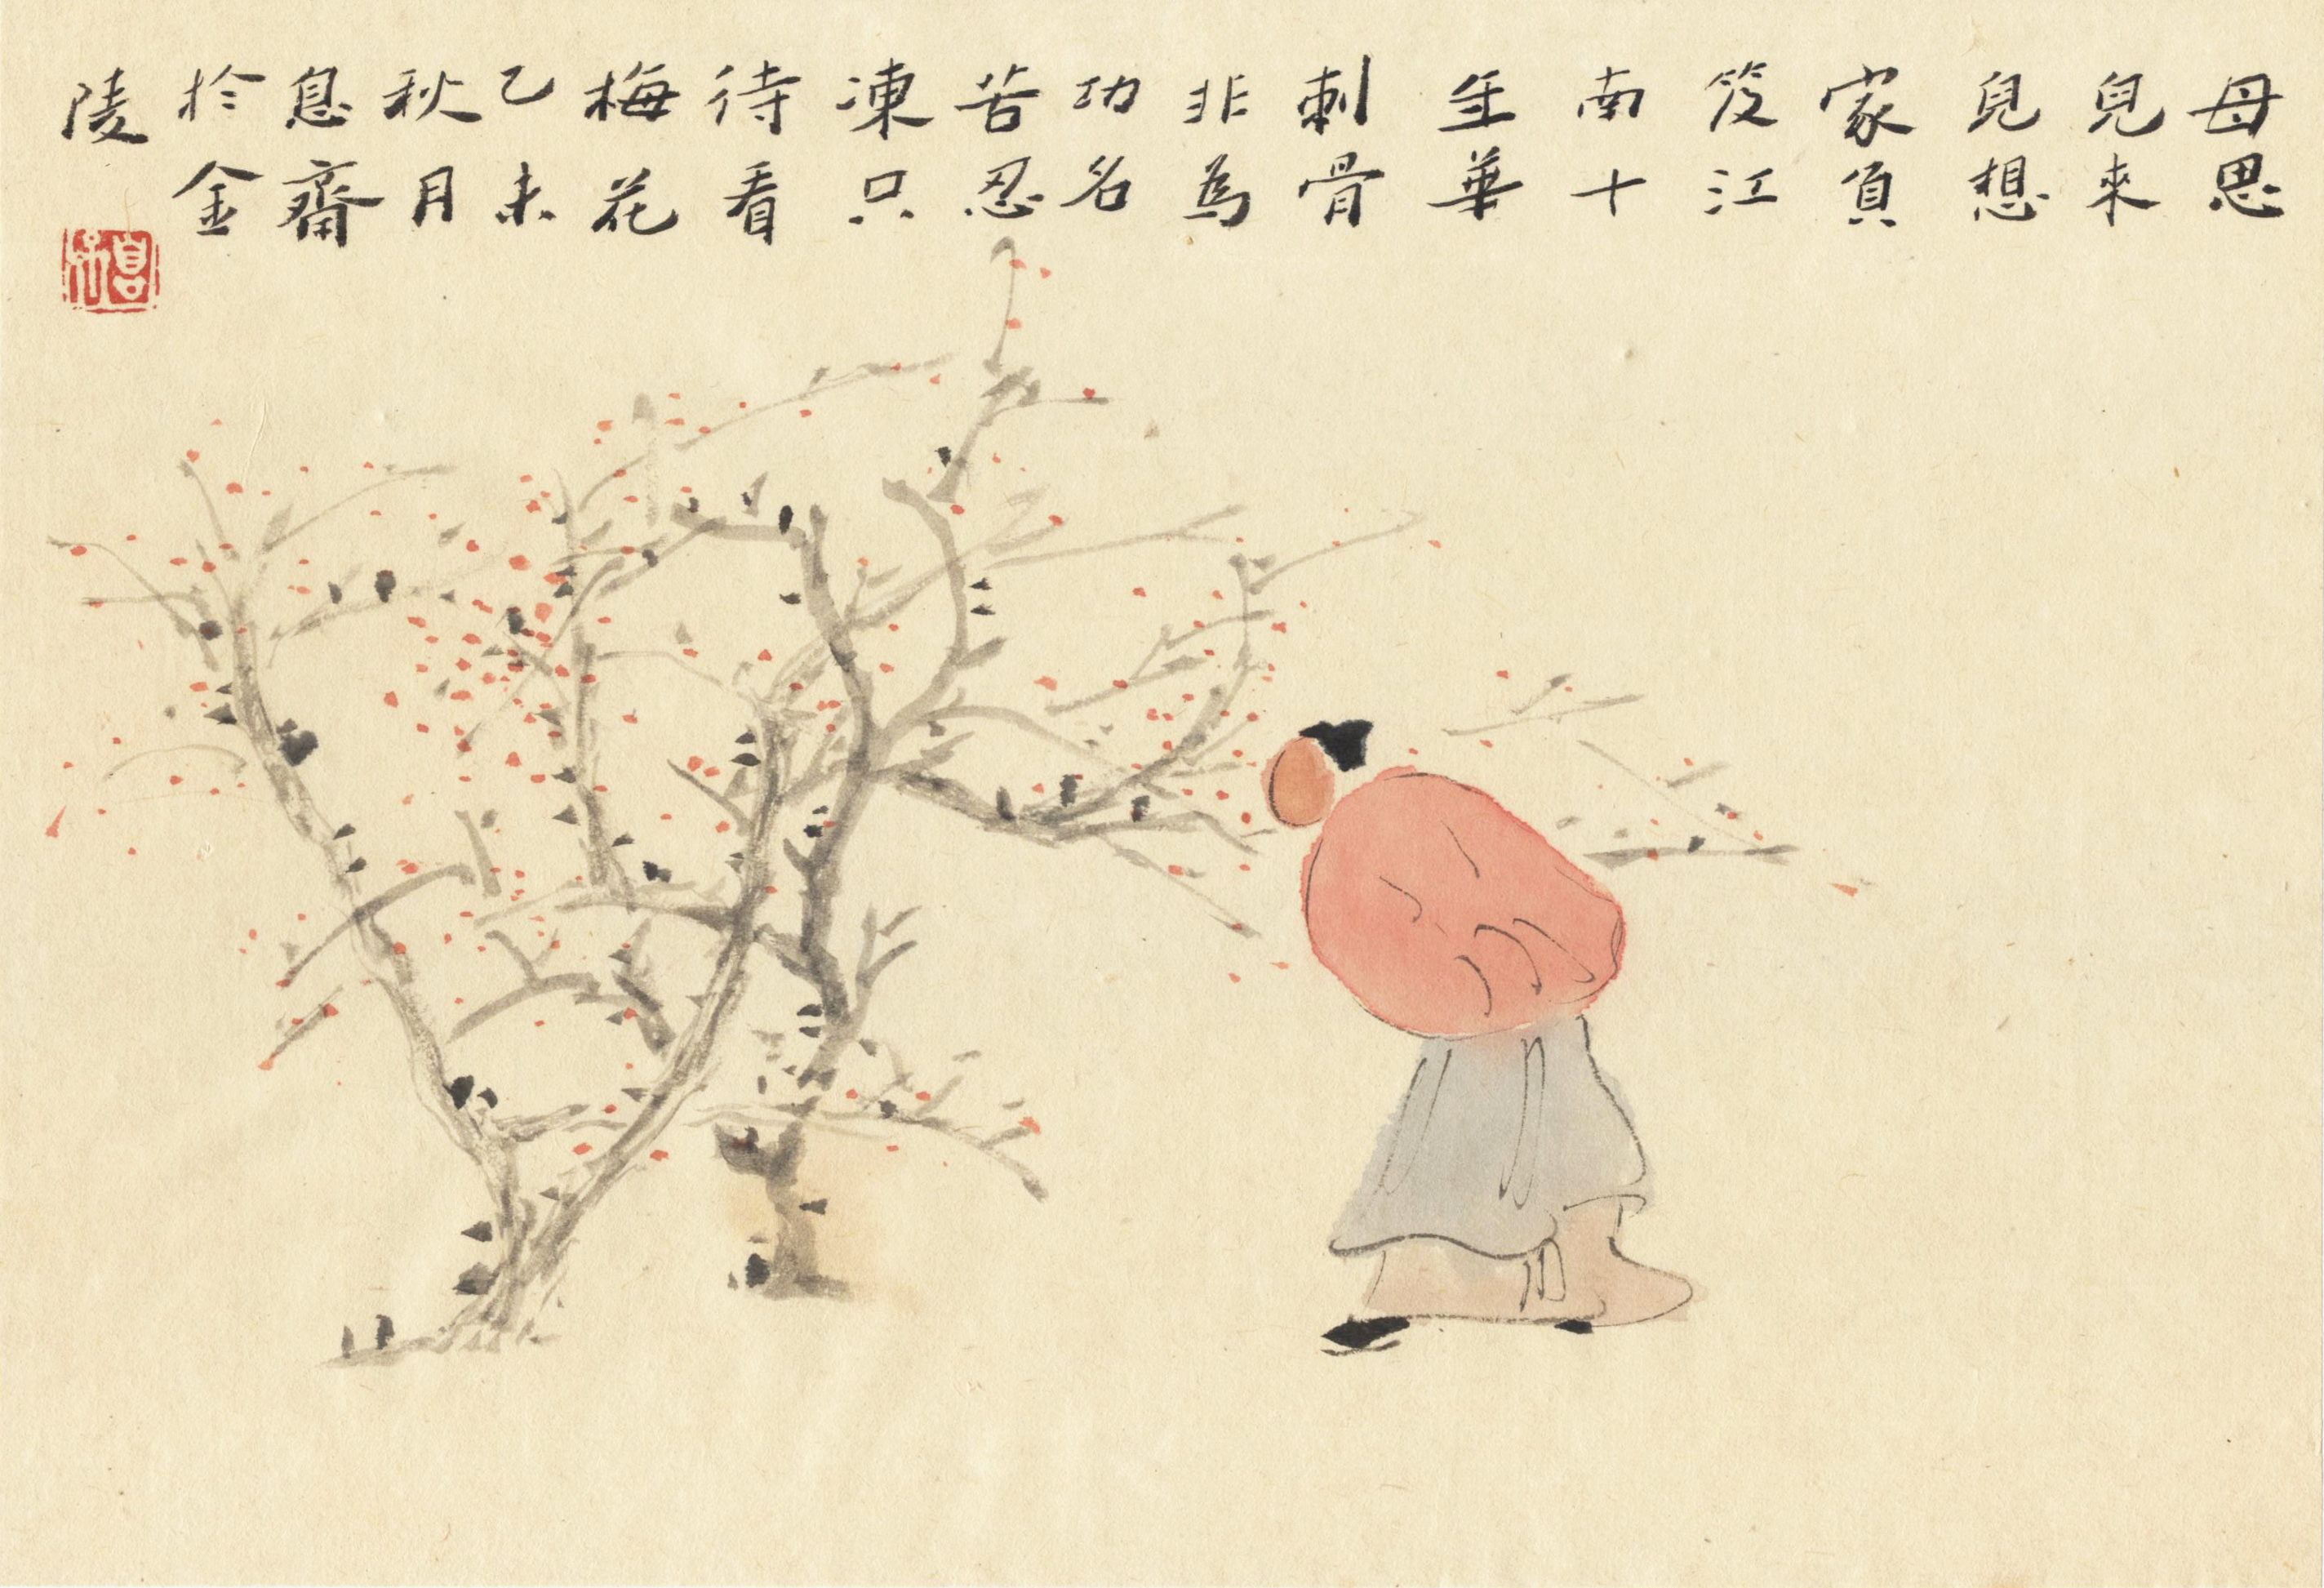 母思
兒來
兒想
家負
笈江
南十
年華
刺骨
非為
功名
苦忍
凍只
待看
梅花
乙未
秋月
息齋
於金
陵